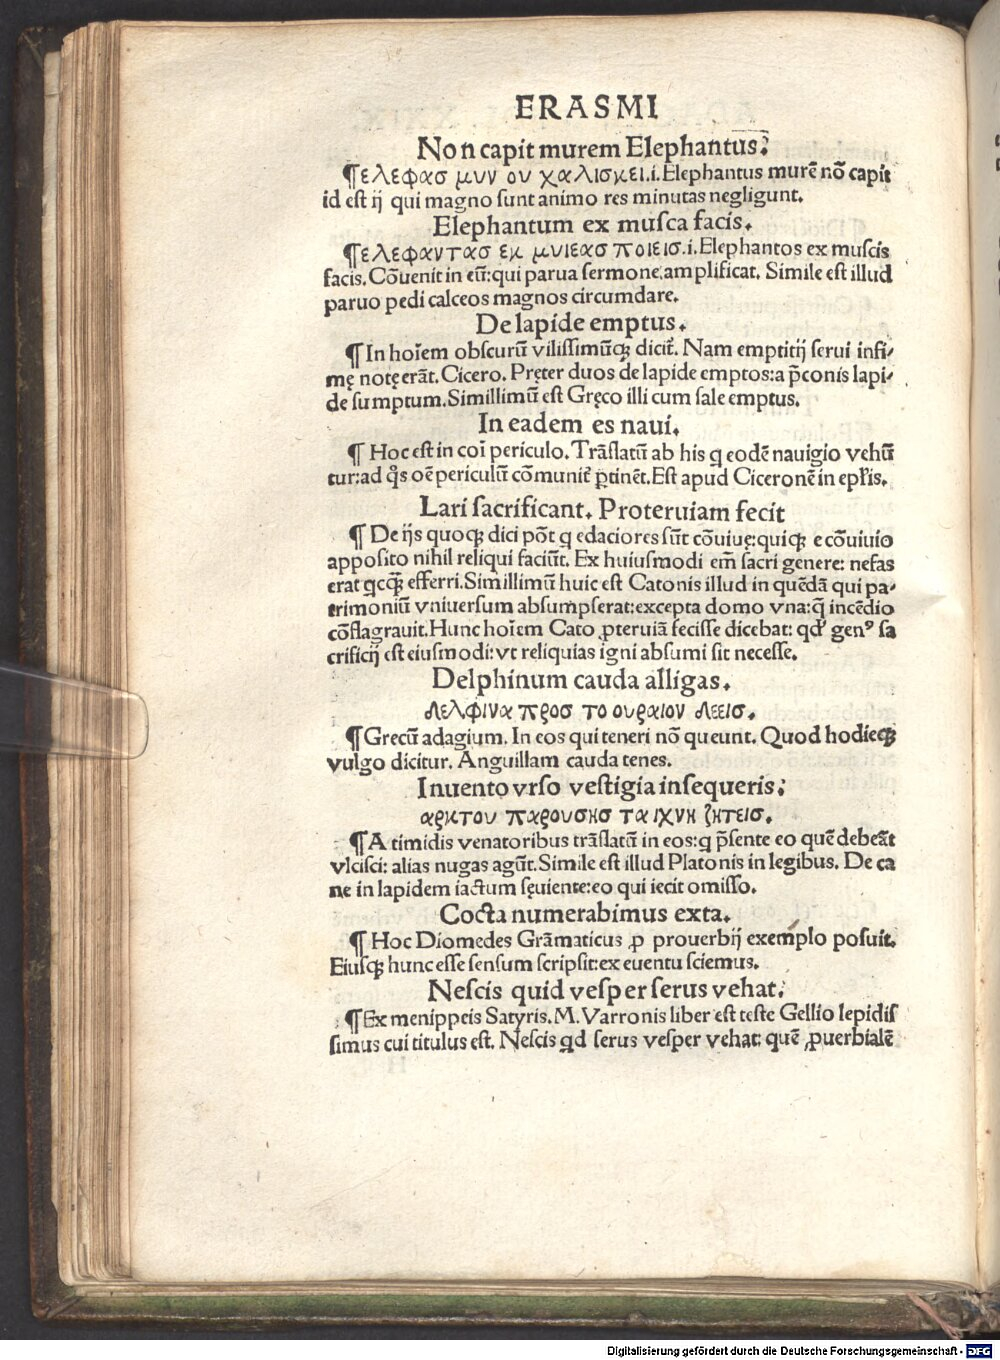 ERASMI
Non capit murem Elephantus.
¶ ελεφασ μυν ου χαλισκει.i. Elephantus murē nō capit
id est ij qui magno sunt animo res minutas negligunt.
Elephantum ex musca facis.
¶ ελεφαντασ εκ μυιεασ ποιεισ.i. Elephantos ex muscis
facis. Cōuenit in eū: qui parua sermone amplificat. Simile est illud
paruo pedi calceos magnos circumdare.
De lapide emptus.
¶ In hoīem obscurū vilissimūqꝫ dicit̄. Nam emptitij serui infi-
mę notę erāt. Cicero. Pręter duos de lapide emptos: a p̄conis lapi-
de sumptum. Simillimū est Gręco illi cum sale emptus.
In eadem es naui.
¶ Hoc est in coī periculo. Trāslatū ab his q eodē nauigio vehū
tur: ad q̊s oē periculū cōmunit̄ p̄tinēt. Est apud Ciceronē in ep̄lis.
Lari sacrificant. Proteruiam fecit
¶ De ijs quoqꝫ dici pōt q edaciores sūt cōuiuę: quiqꝫ e cōuiuio
apposito nihil reliqui faciūt. Ex huiusmodi em̄ sacri genere: nefas
erat qcqꝫ̄ efferri. Simillimū huic est Catonis illud in quēdā qui pa-
trimoniū vniuersum absumpserat: excepta domo vna: q̄ incēdio
cōflagrauit. Hunc hoīem Cato ꝓteruiā fecisse dicebat: qd' genꝰ sa
crificij est eiusmodi: vt reliquias igni absumi sit necesse.
Delphinum cauda alligas.
δελφινα προσ το ουραιον δεεισ.
¶ Grecū adagium. In eos qui teneri nō queunt. Quod hodieqꝫ
vulgo dicitur. Anguillam cauda tenes.
Inuento vrso vestigia insequeris.
αρκτου παρουσησ τα ιχνη ζητεισ.
¶ A timidis venatoribus trāslatū in eos: q p̄sente eo quē debeāt
vlcisci: alias nugas agūt. Simile est illud Platonis in legibus. De ca
ne in lapidem iactum sęuiente: eo qui iecit omisso.
Cocta numerabimus exta.
¶ Hoc Diomedes Grāmaticus ꝓ prouerbij exemplo posuit.
Eiusqꝫ hunc esse sensum scripsit: ex euentu sciemus.
Nescis quid vesper serus vehat.
¶ Ex menippeis Satyris. M. Varronis liber est teste Gellio lepidis
simus cui titulus est. Nescis qd serus vesper vehat: quē ꝓuerbialē
Digitalisierung gefördert durch die Deutsche Forschungsgemeinschaft - DFG